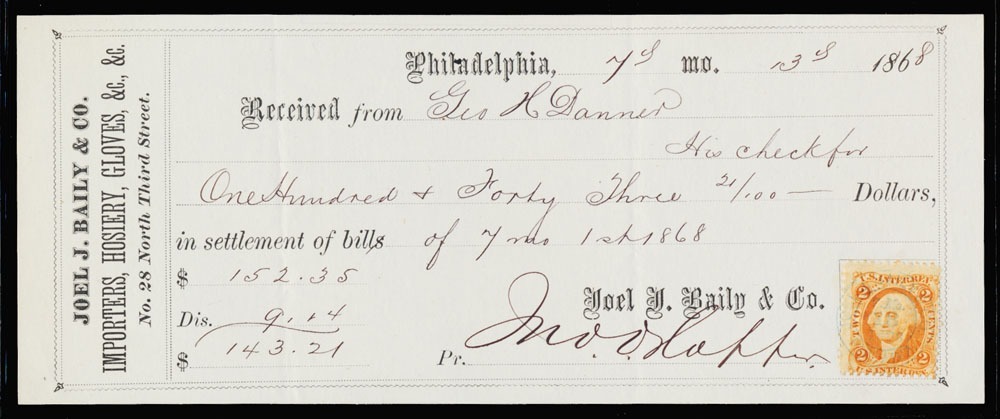 JOEL J. BAILY & CO.
IMPORTERS, HOSIERY, GLOVES, &c., &c.
No. 28 North Third Street.
Philadelphia, 7th mo. 13th 1868
Received from Geo H Danner
His check for
One Hundred & Forty Three 21/100 — Dollars,
in settlement of bills of 7 mo 1st 1868
$ 152.35
Dis. 9.14
$ 143.21
Joel J. Baily & Co.
Pr. Jno.
U.S. INTER. REV.
2 2
TWO CENTS
2 2